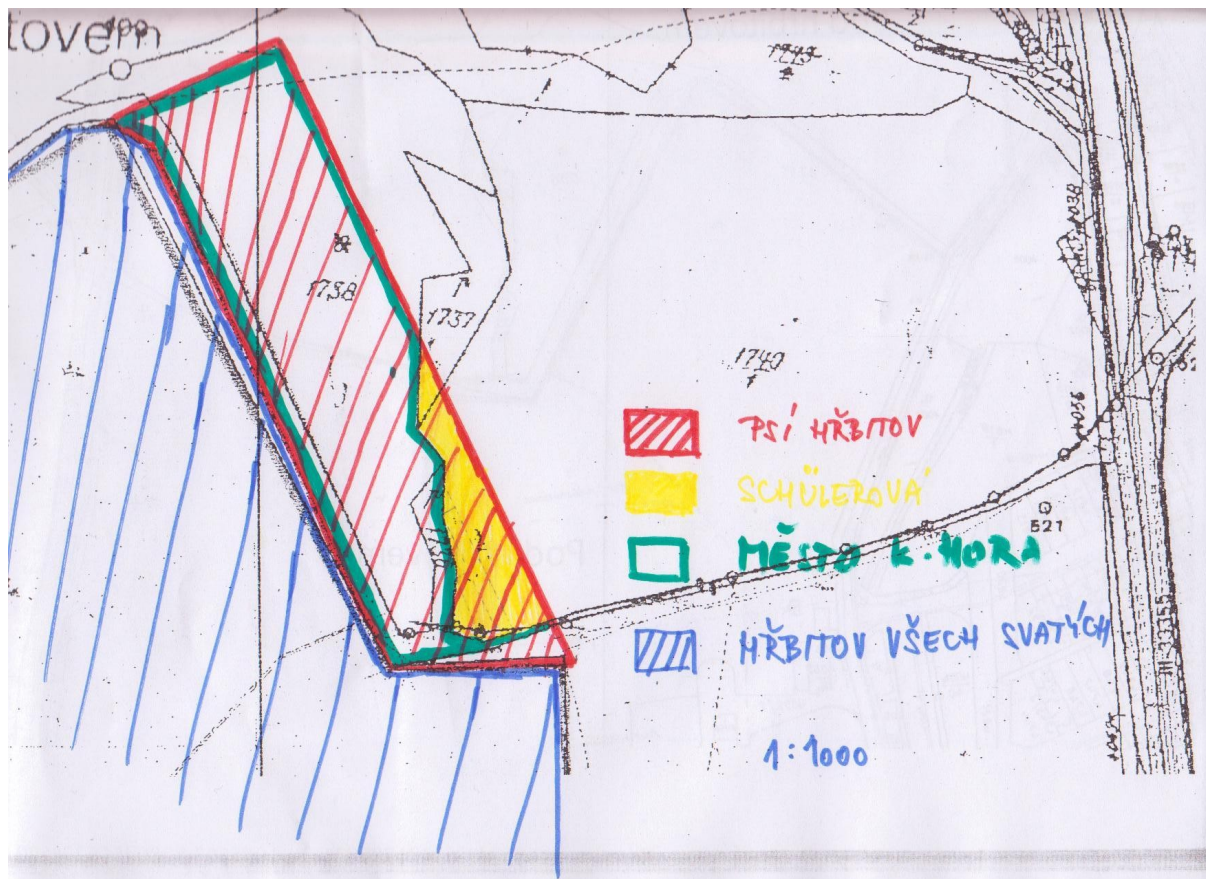 tovem
1743
1738
1737
1740
1038
1036
521
PSÍ HŘBITOV
SCHÜLEROVÁ
MĚSTO K. HORA
HŘBITOV VŠECH SVATÝCH
1:1000